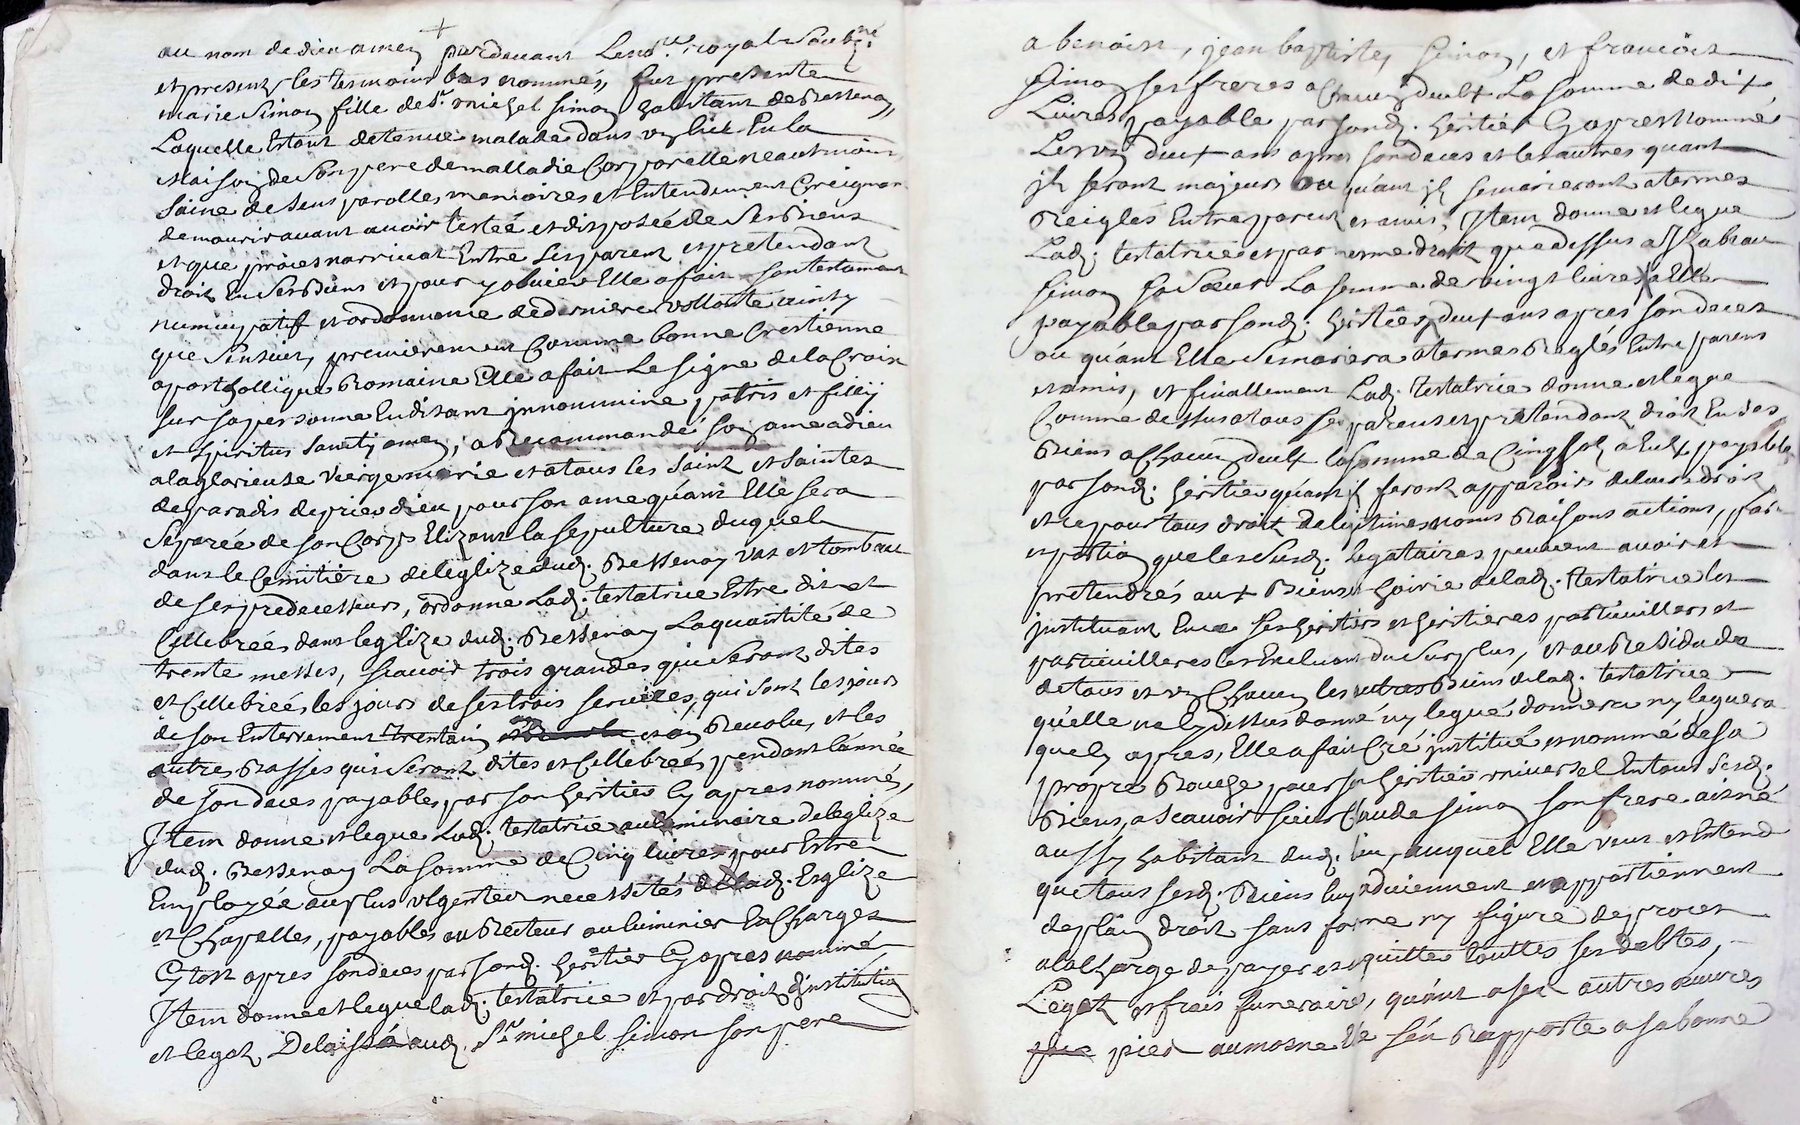 au nom de dieu amen pardevant Le nore royal Soubné
et presents les tesmoins bas nommés, fut presente
marie Simon fille de Sr michel Simon habitant de Bessenay,
Laquelle Estant detenue malade dans un lict En la
maison de Son pere de malladie Corporelle neantmoins
Saine de sens parolles memoires et Entendement Creignant
de mourir avant avoir testée et disposée de Ses Biens
et que procès narrivat Entre Ses parents et pretendant
droit En Ses Biens et pour y obvier Elle a fait son testament
nuncupatif et ordonnance de derniere vollonté ainsy
que Sensuit, premierement Comme bonne Crestienne
apostholique Romaine Elle a fait Le signe de la Croix
sur sa personne En disant jn nommine patris et fillij
et spiritus sancti amen; a Recommandé son ame a dieu
a la glorieuse vierge marie et a tous les saints et saintes
de paradis de prier dieu pour son ame quant Elle sera
Separée de son Corps Elizant la sepulture duquel
dans le Cemitiere de léglize dud. Bessenay vas et tombeau
de ses predecesseurs, ordonne Lad. testatrice Estre dit et
Cellebrées dans leglize dud. Bessenay La quantité de
trente messes, scavoir trois grandes qui Seront dites
et Cellebrées les jours de ses trois services, qui sont les jours
de son Enterrement trentain et an Revolu, et les
autres Basses qui Seront dites et Cellebrées pendant lannée
de son deces payables par son heritier Cy apres nommé,
Jtem donne et legue Lad. testatrice au luminaire de leglize
dud. Bessenay La somme de Cinq livres pour Estre
Employée au plus urgentes necessités de lad. Esglize
et Chapelles, payables au Recteur ou luminier En Charges
Cy tost apres son deces par sond. heritier Cy apres nommé
Jtem donne et legue lad. testatrice et par droit dinstitution
et legat Delaissé aud. Sr michel Simon son pere
a benoist, jean baptiste, Simon, et francois
Simon ses freres a Chacun deulx La somme de dix
Livres payable par sond. heritier Cy apres Nommé
Les un deux ans apres son deces et les autres quant
jls seront majeurs ou quant jls se marieront a termes
Reiglés Entre parents et amis, Jtem donne et legue
Lad. testatrice et par mesme droit que dessus a Jzabeau
Simon Sa Sœur La somme de vingt livres a Elle
payable par sond. heritier deux ans apres son deces
ou quant Elle Se mariera a termes Reglés Entre parens
et amis, et finallement Lad. testatrice donne et legue
Comme dessus a tous ses parens et pretendant droit En Ses
Biens a Chacun deulx la somme de Cinq sols a Eulx payable
par sond. heritier quant jls feront apparoir de leurs droits
et ce pour tous droits de legitimes noms Raisons actions, part
et portion que les Susd. legataires peuvent avoir et
pretendrés aux Biens et hoirie de lad. testatrice les
jnstituant En ce Ses heritiers et heritieres particuilliers et
particuillieres les Excluant du Surplus, et au Residu de
de tous et un Chacun les autres Biens de lad. testatrice
quelle na cy dessus donné ny legué donnera ny leguera
quy apres, Elle a fait Cré jnstitué et nommé de sa
propre Bouche pour son heritier universel En tous Sesd.
Biens, a scavoir sieur Claude Simon son frere aisné
aussy habitant dud. lieu, auquel Elle veut et Entend
que tous sesd. Biens luy adviennent et appartiennent
de plain droit sans forme ny figure de proces
a la Charge de payer et aquitter touttes ses debtes,
Legats et frais funeraires, quant a ses autres œuvres
pies aumosne Elle sen Rapporte a sa bonne